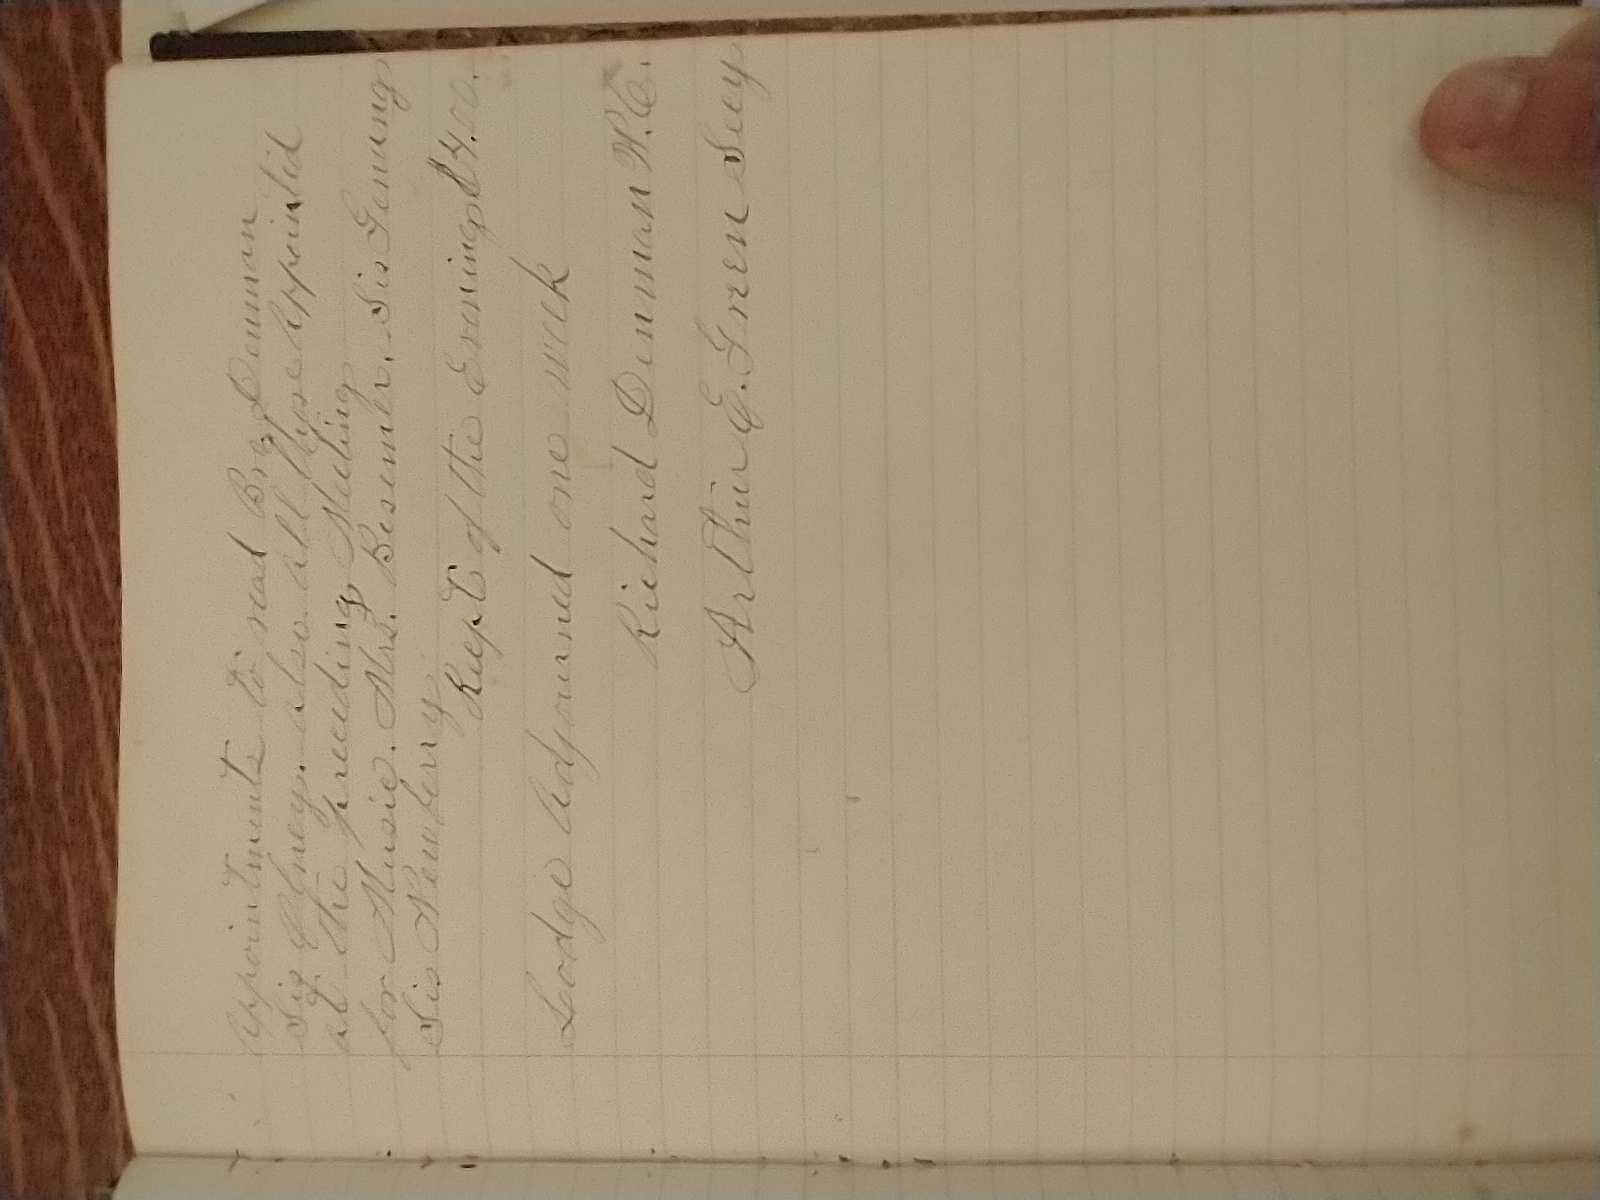 Appointments to read Bro. Denman
Sis Olney. also. all those Appointid
at the preceding Meeting
for Music. Mrs. Besemer. Sis Genung
Sis Newberry
Recpt of the Evening $4.00.
Lodge Adjourned one week
Richard Denman W.C.
Arthur E. Green Secy